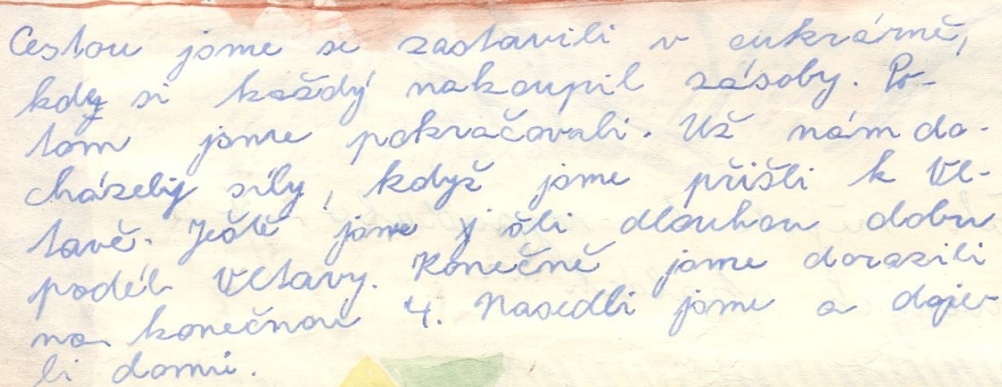 Cestou jsme se zastavili v cukrárně,
kdy si každý nakoupil zásoby. Po-
tom jsme pokračovali. Už nám do-
cházely síly, když jsme přišli k Vl-
tavě. Ještě jsme šli dlouhou dobu
podél Vltavy. Konečně jsme dorazili
na konečnou 4. Nasedli jsme a doje-
li domů.